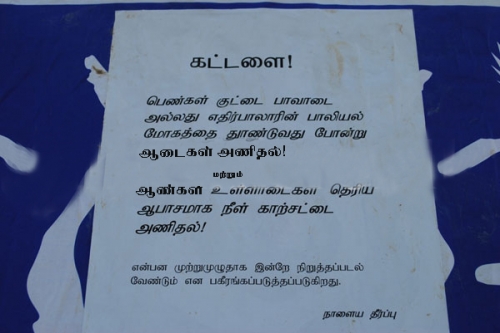 கட்டளை!
பெண்கள் குட்டை பாவாடை
அல்லது எதிர்பாலாரின் பாலியல்
மோகத்தை தூண்டுவது போன்று
ஆடைகள் அணிதல்!
மற்றும்
ஆண்கள் உள்ளாடைகள் தெரிய
ஆபாசமாக நீள் காற்சட்டை
அணிதல்!
என்பன முற்றுமுழுதாக இன்றே நிறுத்தப்படல்
வேண்டும் என பகிரங்கப்படுத்தப்படுகிறது.
நாளைய தீர்ப்பு